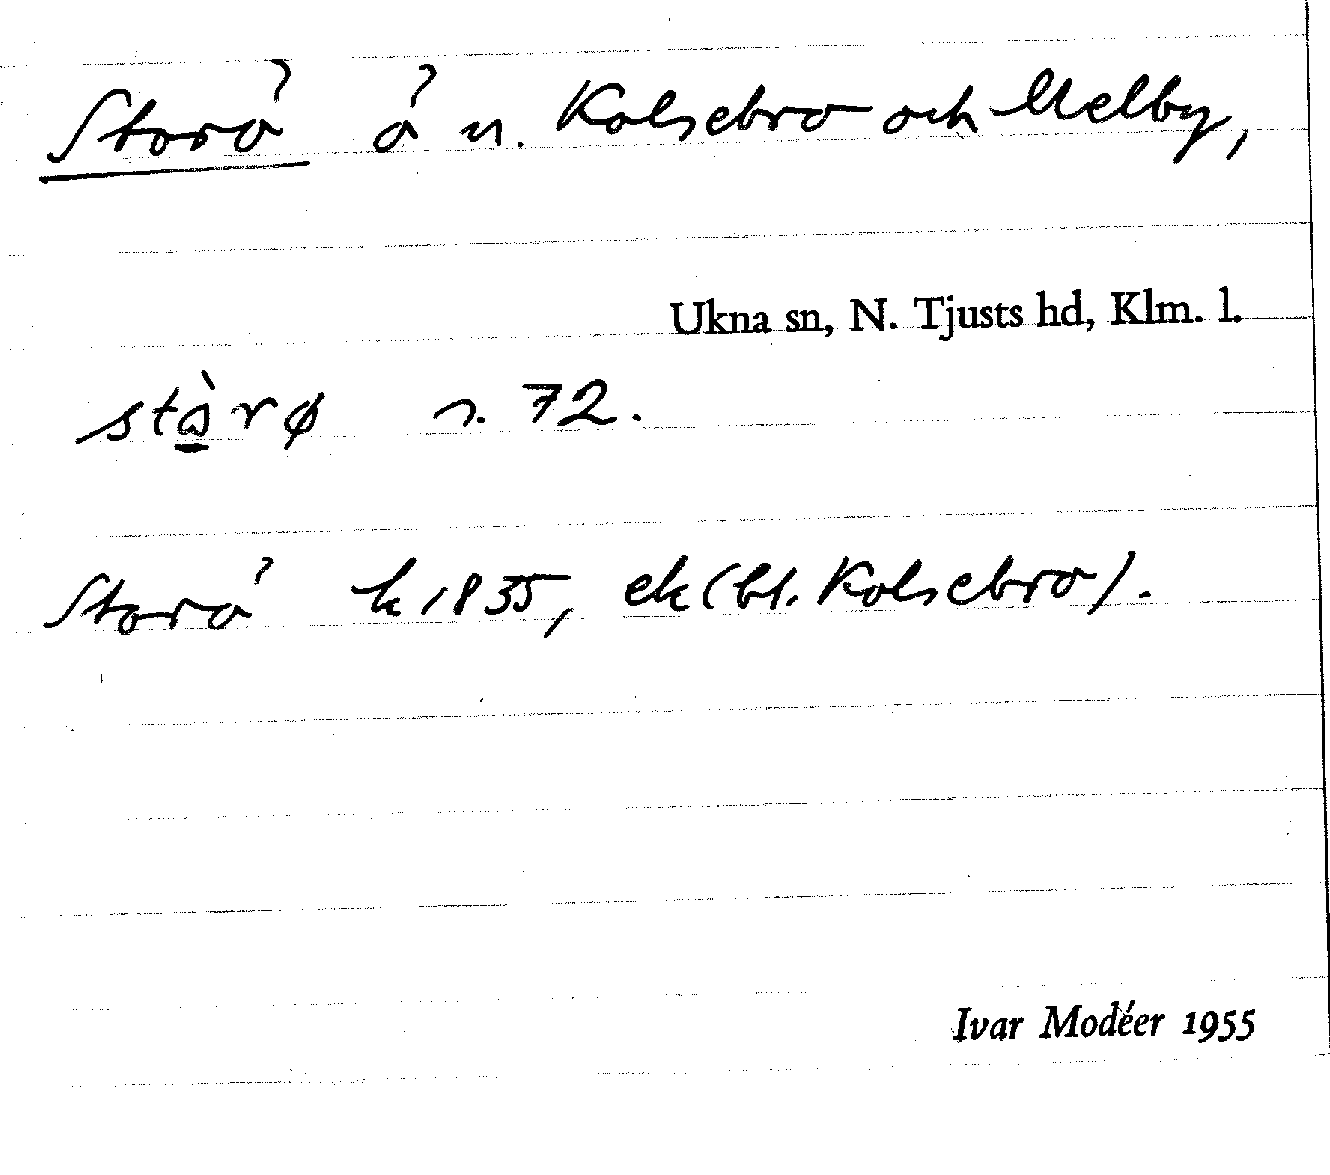 Storå å n. Kolsebro och Melby,
Ukna sn, N. Tjusts hd, Klm. l.
stàrø n. 72.
Storå k 1835, ek (bl. Kolsebro).
Ivar Modéer 1955